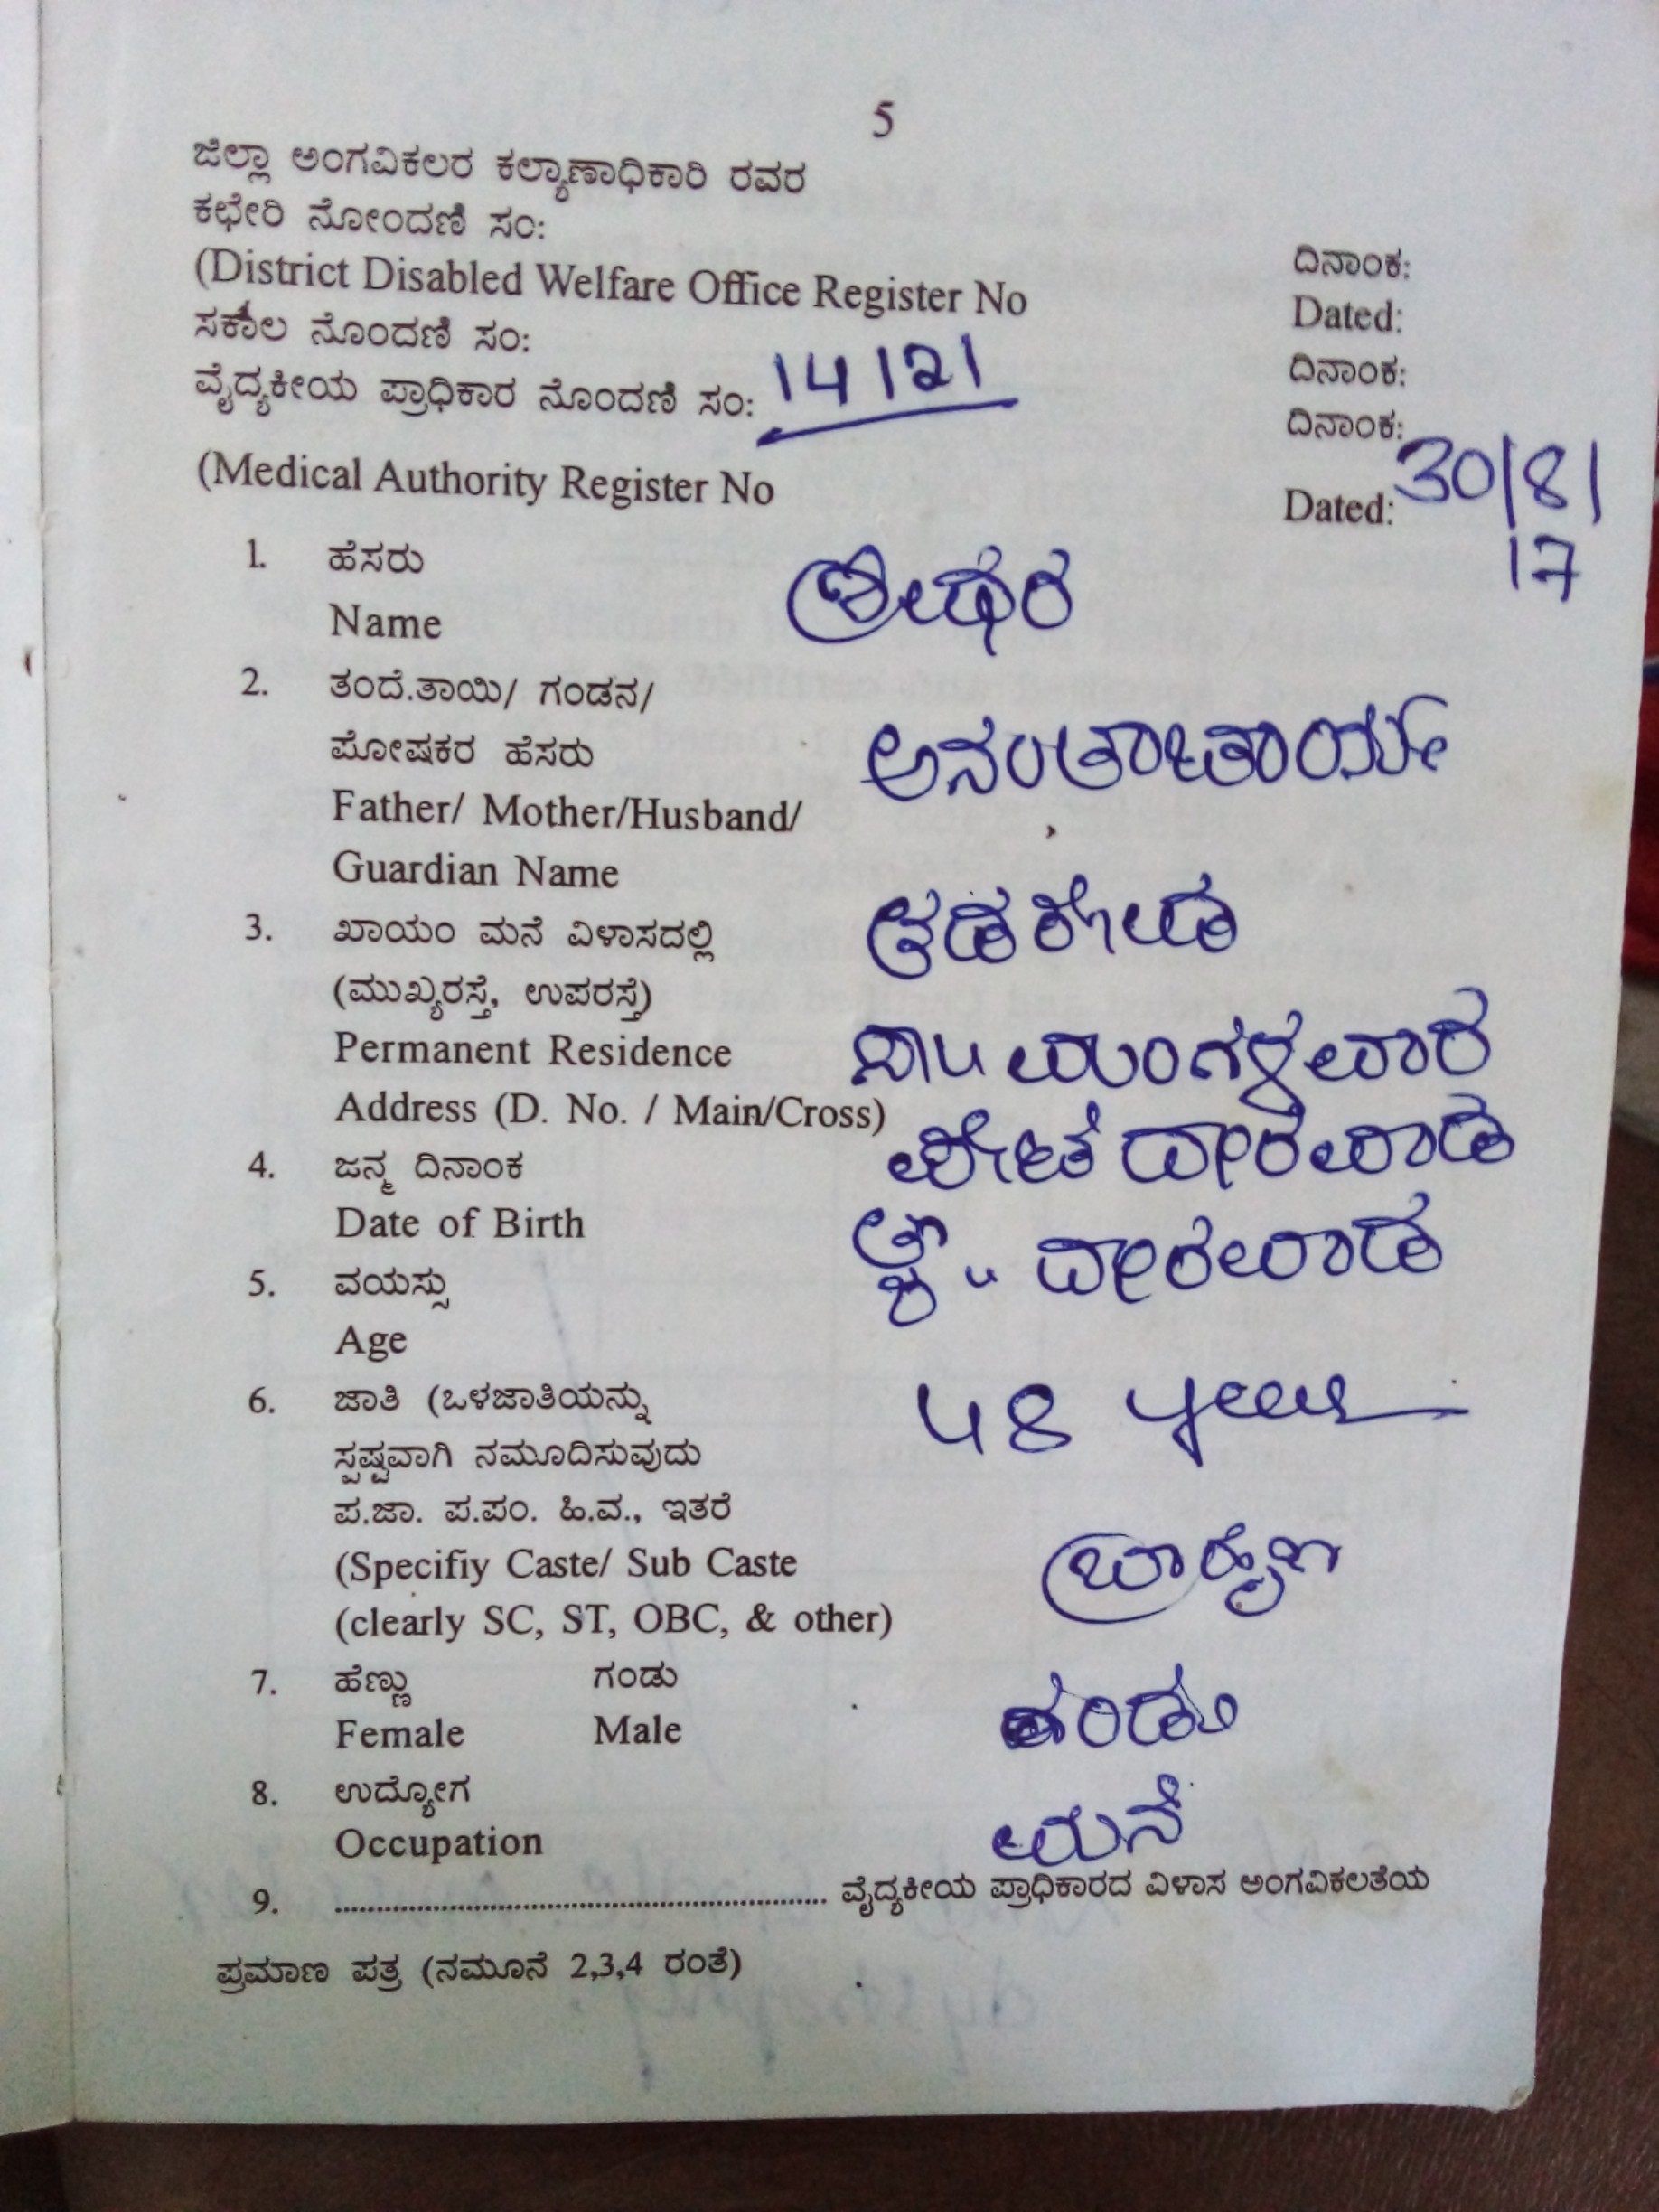 5
ಜಿಲ್ಲಾ ಅಂಗವಿಕಲರ ಕಲ್ಯಾಣಾಧಿಕಾರಿ ರವರ
ಕಛೇರಿ ನೋಂದಣಿ ಸಂ:
ದಿನಾಂಕ:
(District Disabled Welfare Office Register No
Dated:
ಸಕಾಲ ನೊಂದಣಿ ಸಂ:
ದಿನಾಂಕ:
ವೈದ್ಯಕೀಯ ಪ್ರಾಧಿಕಾರ ನೊಂದಣಿ ಸಂ: 14121
ದಿನಾಂಕ:
(Medical Authority Register No
Dated: 30/8/
17
1. ಹೆಸರು
Name
ಶ್ರೀಧರ
2. ತಂದೆ.ತಾಯಿ/ ಗಂಡನ/
ಪೋಷಕರ ಹೆಸರು
Father/ Mother/Husband/
Guardian Name
3. ಖಾಯಂ ಮನೆ ವಿಳಾಸದಲ್ಲಿ
(ಮುಖ್ಯರಸ್ತೆ, ಉಪರಸ್ತೆ)
Permanent Residence
ಮಂಗಳವಾರ
Address (D. No. / Main/Cross)
ಪೇಟೆ ಧಾರವಾಡ
4. ಜನ್ಮ ದಿನಾಂಕ
Date of Birth
ಧಾರವಾಡ
5. ವಯಸ್ಸು
Age
48
6. ಜಾತಿ (ಒಳಜಾತಿಯನ್ನು
ಸ್ಪಷ್ಟವಾಗಿ ನಮೂದಿಸುವುದು
ಪ.ಜಾ. ಪ.ಪಂ. ಹಿ.ವ., ಇತರೆ
(Specifiy Caste/ Sub Caste
ಬ್ರಾಹ್ಮಣ
(clearly SC, ST, OBC, & other)
7. ಹೆಣ್ಣು ಗಂಡು
Female Male
ಗಂಡು
8. ಉದ್ಯೋಗ
Occupation
ಮನೆ
9. .......................................................... ವೈದ್ಯಕೀಯ ಪ್ರಾಧಿಕಾರದ ವಿಳಾಸ ಅಂಗವಿಕಲತೆಯ
ಪ್ರಮಾಣ ಪತ್ರ (ನಮೂನೆ 2,3,4 ರಂತೆ)